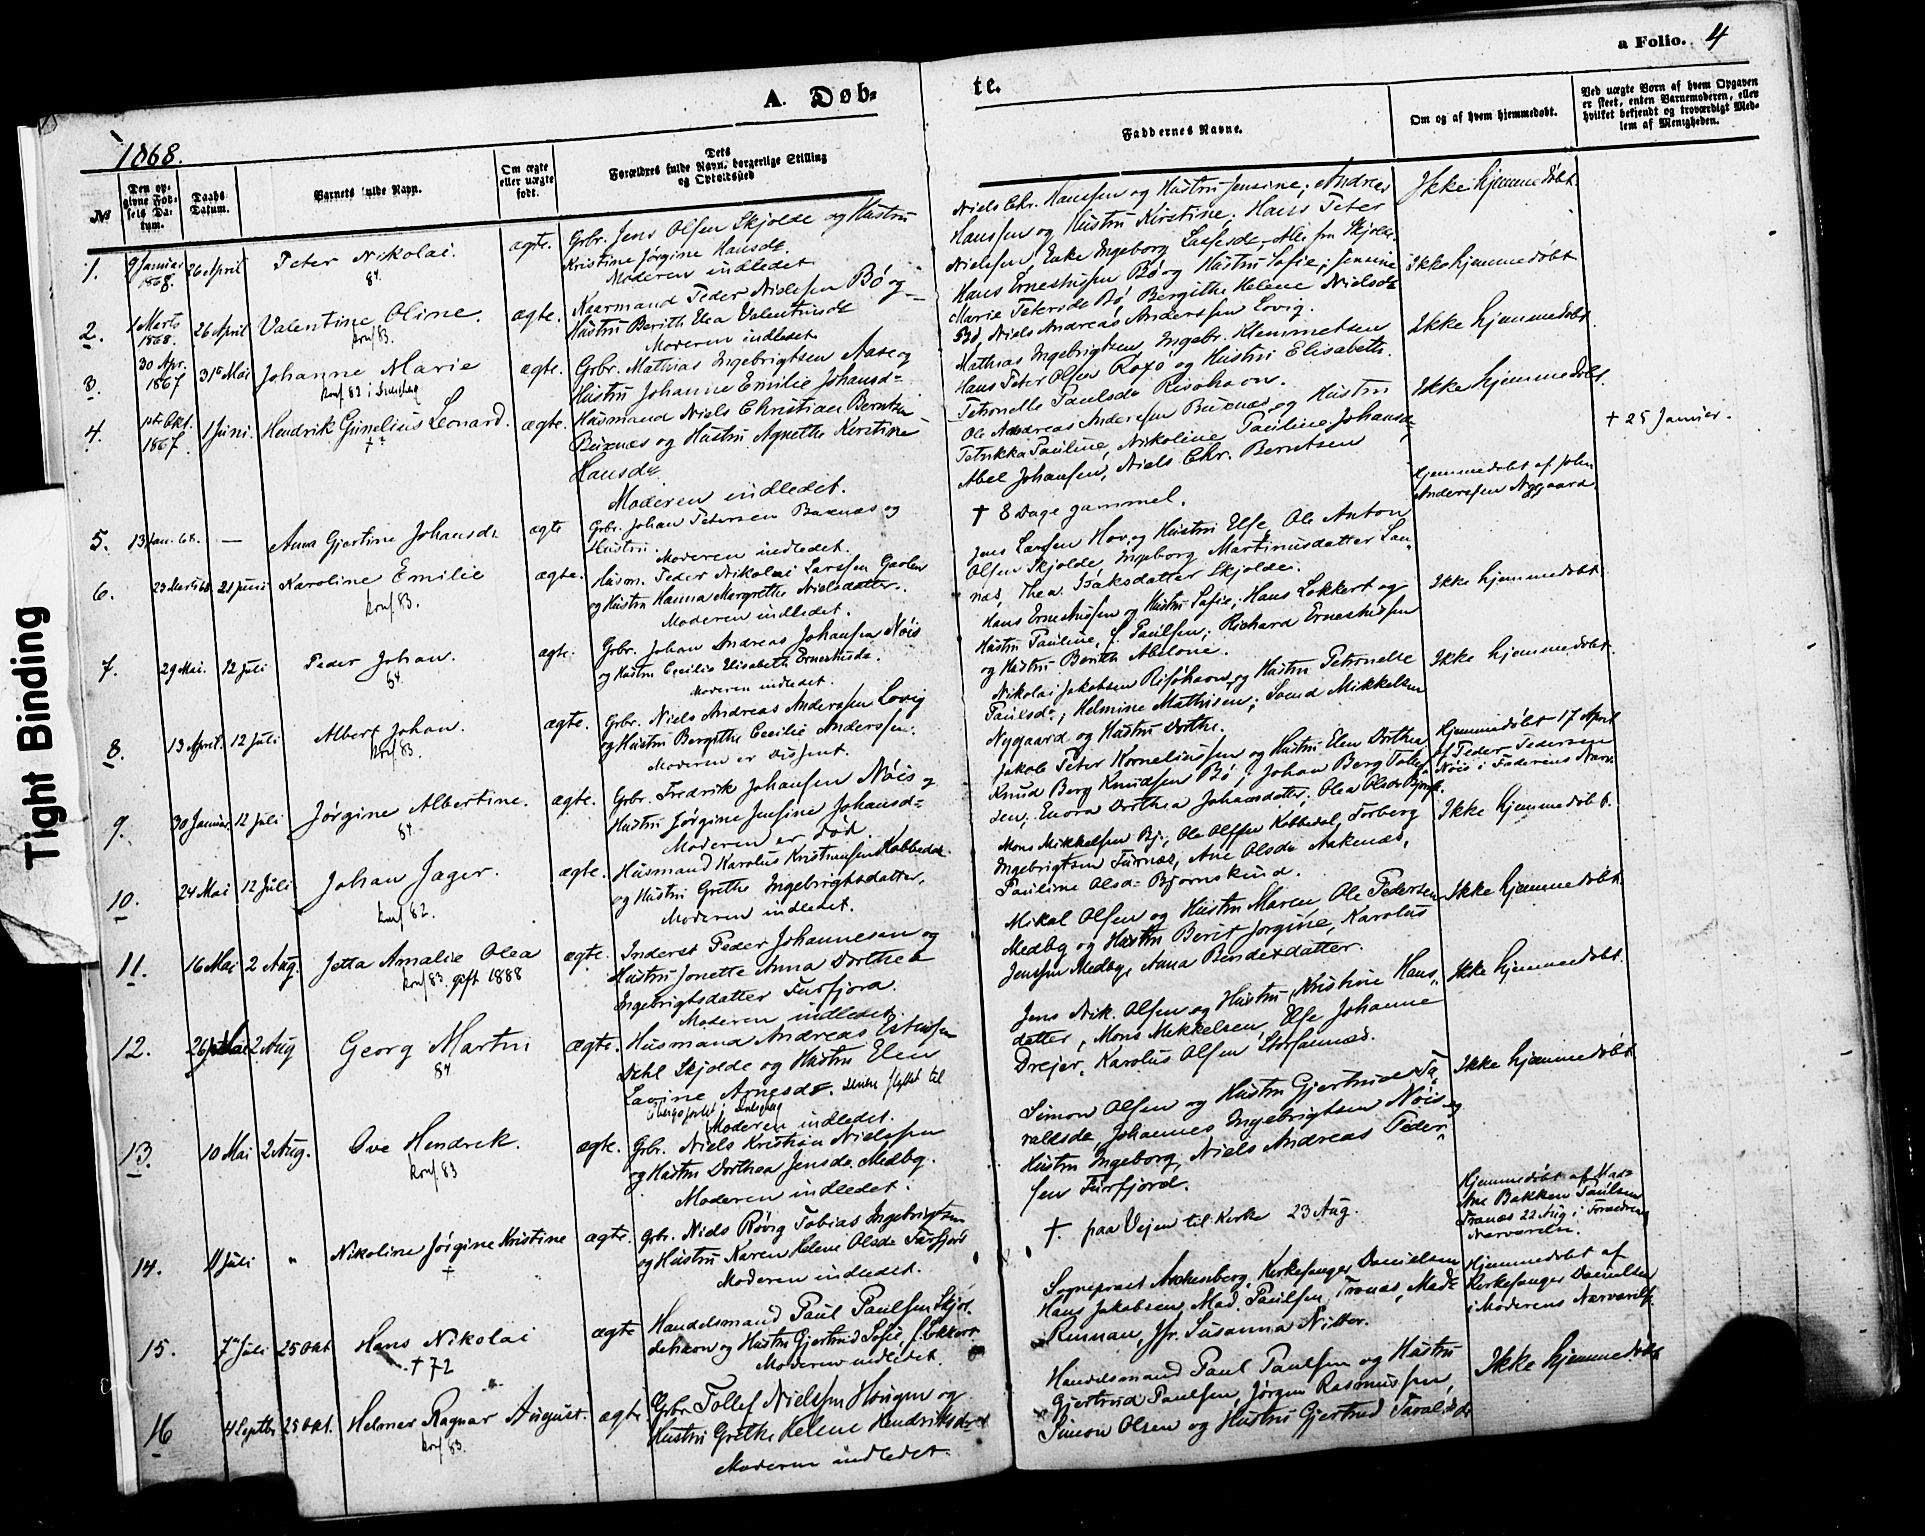 a Folio. 4
A. Døb-
te.
1868.
№
Den op-
givne Fød-
sels Da-
tum.
Daabs
Datum.
Barnets fulde Navn.
Om ægte
eller uægte
født.
Dets
Forældres fulde Navn, borgerlige Stilling
og Opholdssted
Faddernes Navne.
Om og af hvem hjemmedøbt.
Ved uægte Børn af hvem Opgaven
er skeet, enten Barnemoderen, eller
hvilket bekjendt og troværdigt Med-
lem af Menigheden.
1.
9 Januar
1868.
26 April
Peter Nikolai.
84.
ægte.
Grbr. Jens Olsen Skjolde og Hustru
Kristine Jørgine Hansdr
Moderen indledet
Niels Chr. Hanssen og Hustru Jensine; Andreas
Hanssen og Hustru Kirstine; Hans Peter
Nielssen, Enke Ingeborg Larsesdr. Alle fra Skjolde.
Ikke hjemmedøbt.
2.
1 Marts
1868.
26 April
Valentine Oline.
konf 83.
ægte.
Kaarmand Peder Nielssen Bö og
Hustru Berith Elea Valentinsdr
Moderen indledet
Hans Ernestussen Bö og Hustru Sofie; Jensine
Marie Petersdr Bö, Bergithe Helene Nielsdr
Bö, Niels Andreas Anderssen Lovig.
Ikke hjemmedøbt
3.
30 Apr.
1867
31te Mai
Johanne Marie
konf. 82 i
ægte.
Grbr. Mathias Ingebrigtsen Aase og
Hustru Johanne Emilie Johansd=
Mathias Ingebrigtsen, Ingebr. Klemmetsen
Hans Peter Olsen Roxö og Hustru Elisabeth.
Petronelle Paulsdr Risöhavn.
Ikke hjemmedøbt
4.
1ste Okt.
1867.
1 Juni.
Hendrik Gunelius Leonard.
†
ægte.
Husmand Niels Christian Berntsen
Buxnæs og Hustru Agnethe Kirstine
Hansdr.
Moderen indledet.
Ole Andreas Anderssen Buxnæs og Hustru
Petrikka Pauline, Nikoline Pauline Johansdr,
Abel Johanssen, Niels Chr. Berntsen
Ikke hjemmedøbt.
† 25 Januar.
5.
13 Jan. 68.
—
Anna Gjertine Johansdr
ægte
Grbr. Johan Petersen Buxnæs og
Hustru.
Moderen indledet.
† 8 Dage gammel.
Hjemmedøbt af John
Anderssen Nygaard
6.
23 Marts 68
21 Juni
Karoline Emilie
konf 83.
ægte.
Husm. Peder Nikolai Larssen Gaolen
og Hustru Hanna Margrethe Nielsdatter.
Moderen indledet.
Jens Larssen Hov og Hustru Else, Ole Anton
Olsen Skjolde, Ingeborg Martinusdatter San-
næs, Thea Isaksdatter Skjolde.
Ikke hjemmedøbt.
7.
29 Mai.
12 Juli
Peder Johan.
84.
ægte.
Grbr. Johan Andreas Johansen Nöis
og Hustru Cecilia Elisabeth Ernestusdr.
Moderen indledet.
Hans Ernestussen og Hustru Sofie; Hans Lokkert og
Hustru Pauline, f. Paulsen; Richard Ernestussen
og Hustru Berith Abelone.
Ikke hjemmedøbt.
8.
13 April.
12 Juli
Albert Johan.
konf 83.
ægte.
Grbr. Niels Andreas Anderssen Lovig
og Hustru Bergithe Cecilie Anderssen.
Moderen er Dissent.
Nikolai Jakobsen Risöhavn og Hustru Petronelle
Paulsdr, Helmine Mathisen; Svend Mikkelsen
Nygaard og Hustru Dorthe.
Hjemmedøbt 17 April
af Peder Pedersen
Nöis i Faderens Nærv.
9.
30 Januar.
12 Juli
Jørgine Albertine.
84
ægte.
Grbr. Fredrik Johansen Nöis og
Hustru Jørgine Jensine Johansd=
Moderen er död.
Jakob Peter Korneliussen og Hustru Elen Dorthea
Knud Berg Knudsen Bö; Johan Berg Tollef-
sen; Enora Dorthea Johansdatter; Olea Olsdr
Ikke hjemmedøbt.
10.
24 Mai
12 Juli
Johan Jæger.
konf 82.
ægte.
Husmand Karolus Kristiansen Kobbedal
og Hustru Grethe Ingebrigtsdatter,
Moderen indledet.
Mons Mikkelsen Bj., Ole Olssen Kobbedal, Torberg
Ingebrigtsen Furnæs, Ane Olsdr Aakenæs,
Pauline Olsd= Bjørnskind.
Ikke hjemmedøbt
11.
16 Mai
2 Aug.
Jetta Amalie Olea
konf 83. gift 1888
ægte.
Inderst Peder Johannesen og
Hustru Jonette Anna Dorthea
Ingebrigtsdatter Furfjord.
Moderen indledet.
Mikal Olsen og Hustru Maren, Ole Pedersen
Medby og Hustru Berit Jørgine, Karolus
Jenssen Medby, Anna Bendixdatter.
Ikke hjemmedøbt
12.
26 Mai
2 Aug
Georg Martin
84
ægte.
Husmand Andreas Estensen
Dehl Skjolde og Hustru Elen
Lavine Arnesdr. senere flyttet til
Moderen indledet.
Jens Nik. Olsen og Hustru Kristine Hans-
datter, Mons Mikkelsen, Else Johanne
Drejer, Karolus Olsen Storfannæs.
Ikke hjemmedøbt
13.
10 Mai
2 Aug.
Ove Hendrek.
konf 83
ægte.
Grbr. Niels Kristian Nielssen
og Hustru Dorthea Jensdr. Medby.
Moderen indledet.
Simon Olsen og Hustru Gjertrud Ta-
valesdr, Johannes Ingebrigtsen Nöis og
Hustru Ingeborg, Niels Andreas Peder-
sen Furfjord.
14.
11 Juli
"
Nikoline Jørgine Kristine
†
ægte.
Grbr. Niels Røvig Tobias Ingebrigtsen
og Hustru Karen Helene Olsdr Furfjord
Moderen indledet.
† paa Vejen til Kirke 23 Aug.
Hjemmedøbt af Mar-
Ane Bakken Paulsen
Tranæs 22 Aug i Forældrenes
Nærværelse.
15.
7de Juli
25 Okt
Hans Nikolai
† 72
ægte
Handelsmand Paul Paulsen Skjol-
dehavn og Hustru Gjertrud Sofie, f. Lokkert.
Moderen indledet.
Sognepræst Aschenberg, Kirkesanger Danielsen
Hans Jakobsen, Mad. Paulsen Tranæs, Mad=
Renman, Jfr. Susanna Nitter.
Hjemmedøbt af
Kirkesanger Danielsen
i Moderens Nærværelse
16
4 Septbr
25 Okt.
Helmer Ragnar August.
konf 83.
ægte
Grbr. Tollef Nielssen Haugen og
Hustru Grethe Helene Hendriksdr
Moderen indledet.
Handelsmand Paul Paulsen og Hustru
Gjertrud Paulsen, Jørgen Rasmussen,
Simon Olsen og Hustru Gjertrud Tavalesdr
Ikke hjemmedøbt
Tight Binding